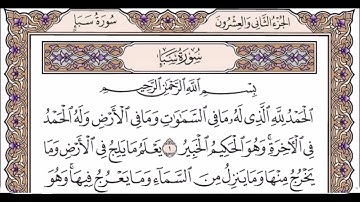 الجزء الثاني والعشرون
سورة سبإ
سورة سبإ
بسم الله الرحمن الرحيم
الحمد لله الذي له ما في السموت وما في الأرض وله الحمد
في الآخرة وهو الحكيم الخبير ١ يعلم ما يلج في الأرض وما
يخرج منها وما ينزل من السماء وما يعرج فيها وهو